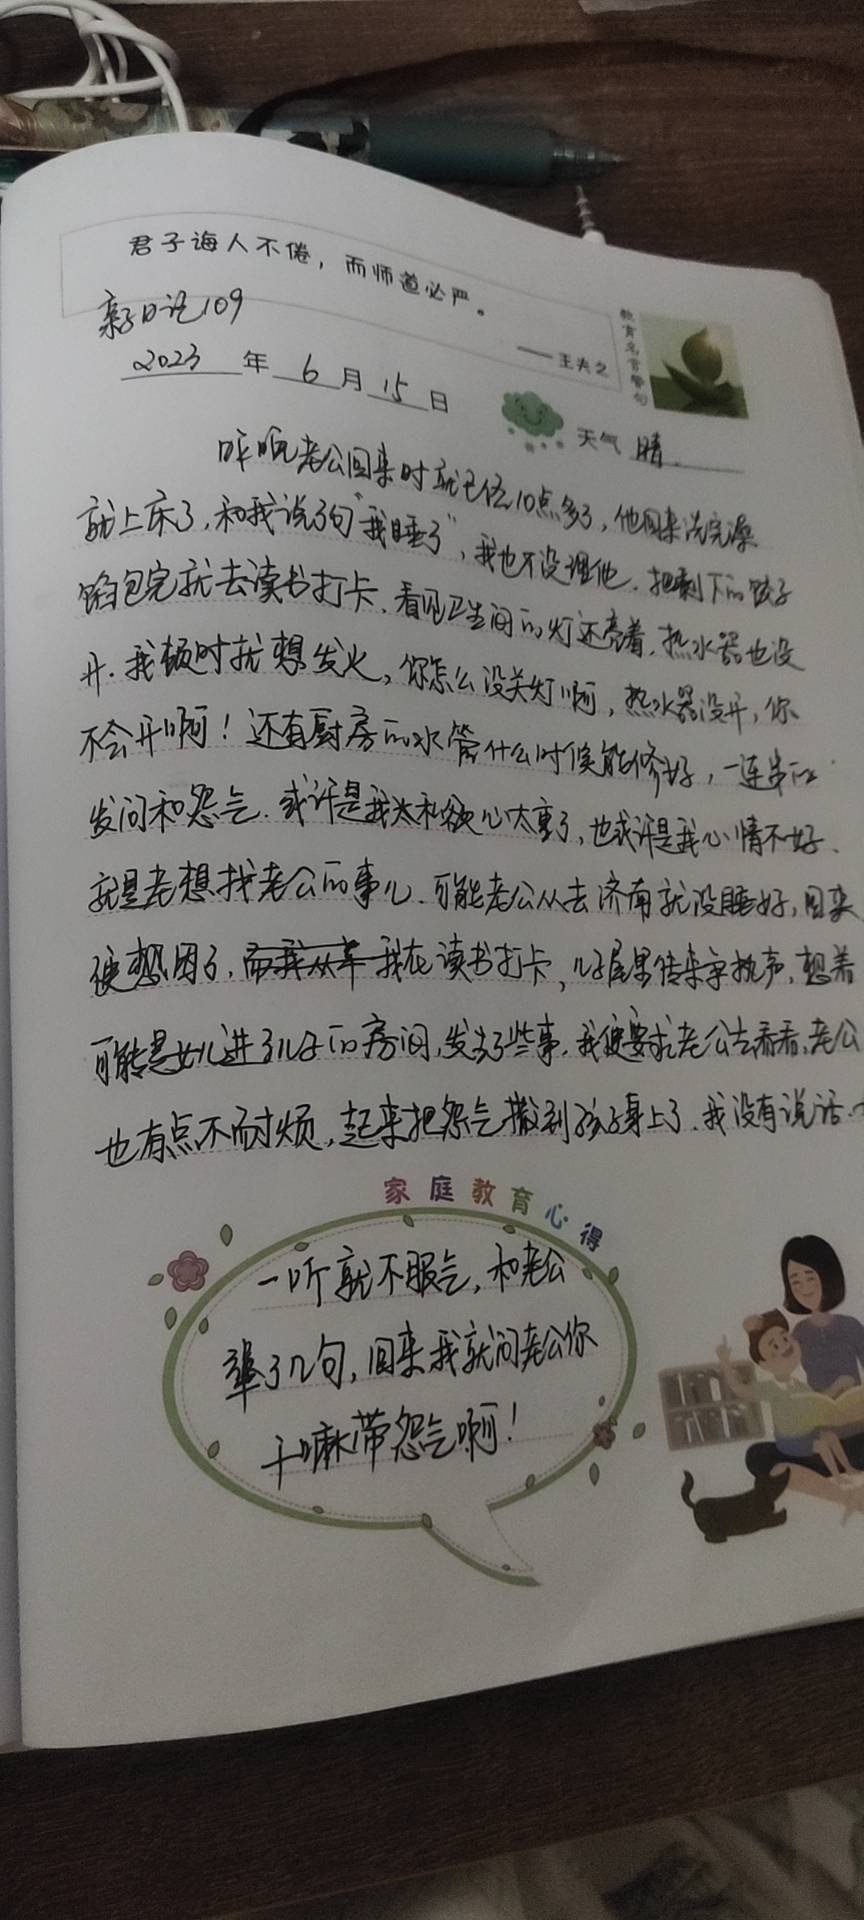 君子诲人不倦，而师道必严。
——王夫之
教育名言警句
亲子日记109
2023年6月15日
天气 晴
昨晚老公回来时就已经10点多了，他回来洗完澡
就上床了，和我说了句“我睡了”，我也不没理他．把剩下的饺子
馅包完就去读书打卡．看见卫生间的灯还亮着．热水器也没
开．我顿时就想发火，你怎么没关灯啊，热水器没开，你
不会开啊！还有厨房的水管什么时候能修好，一连串的
发问和怨气．或许是我太和心太重了，也或许是我心情不好．
就是老想找老公的事儿．可能老公从去济南就没睡好，回来
便想困了．而我从车 我在读书打卡，儿子屋里传来争执声，想着
可能是女儿进了儿子的房间，发生了些事．我便要求老公去看看，老公
也有点不耐烦，起来把怨气撒到孩子身上了．我没有说话．
家庭教育心得
一听就不服气，和老公
犟了几句，回来我就问老公你
干嘛带怨气啊！